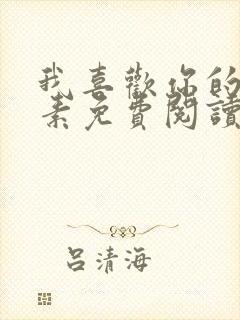 我喜歡你的
素免費閱讀
呂清海